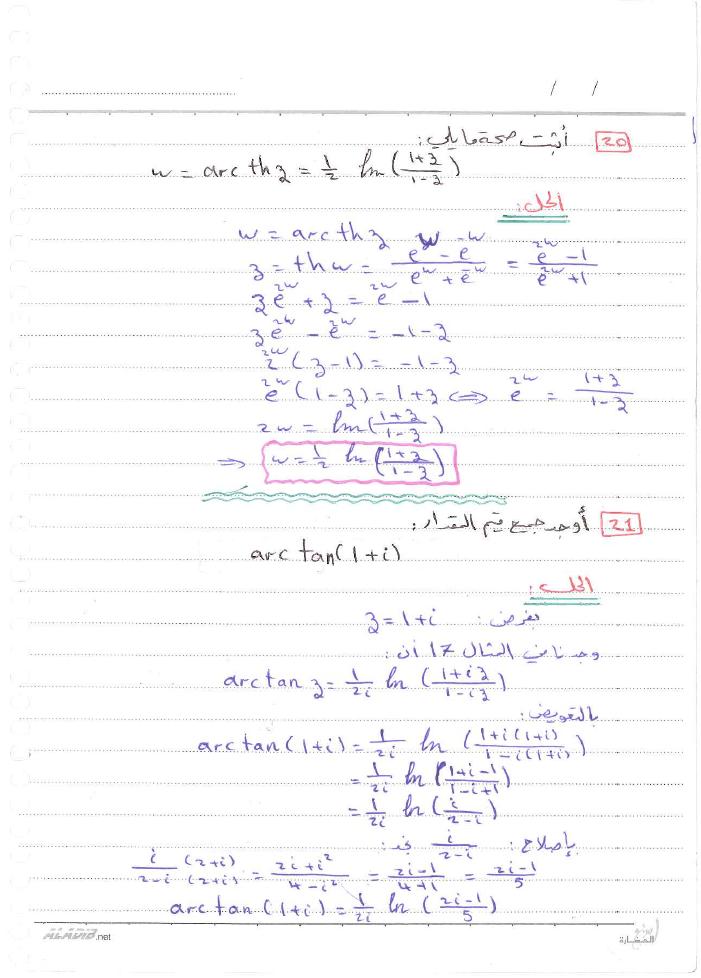 / /
20 أثبت صحة مايلي:
w = arc th z = 1/2 ln((1+z)/(1-z))
الحل:
w = arc th z
z = th w = (e^w - e^-w)/(e^w + e^-w) = (e^2w - 1)/(e^2w + 1)
z e^2w + z = e^2w - 1
z e^2w - e^2w = -1-z
e^2w (z-1) = -1-z
e^2w (1-z) = 1+z ⟺ e^2w = (1+z)/(1-z)
2w = ln((1+z)/(1-z))
⇒ w = 1/2 ln((1+z)/(1-z))
21 أوجد جميع قيم المقدار:
arc tan(1+i)
الحل:
بفرض: z = 1+i
وجدنا في المثال 17 أن:
arctan z = 1/2i ln((1+iz)/(1-iz))
بالتعويض:
arctan(1+i) = 1/2i ln((1+i(1+i))/(1-i(1+i)))
= 1/2i ln((1+i-1)/(1-i+1))
= 1/2i ln(i/(2-i))
بإصلاح: i/(2-i) نجد:
i/(2-i) (2+i)/(2+i) = (2i+i²)/(4-i²) = (2i-1)/(4+1) = (2i-1)/5
arctan(1+i) = 1/2i ln((2i-1)/5)
ALADIB.net